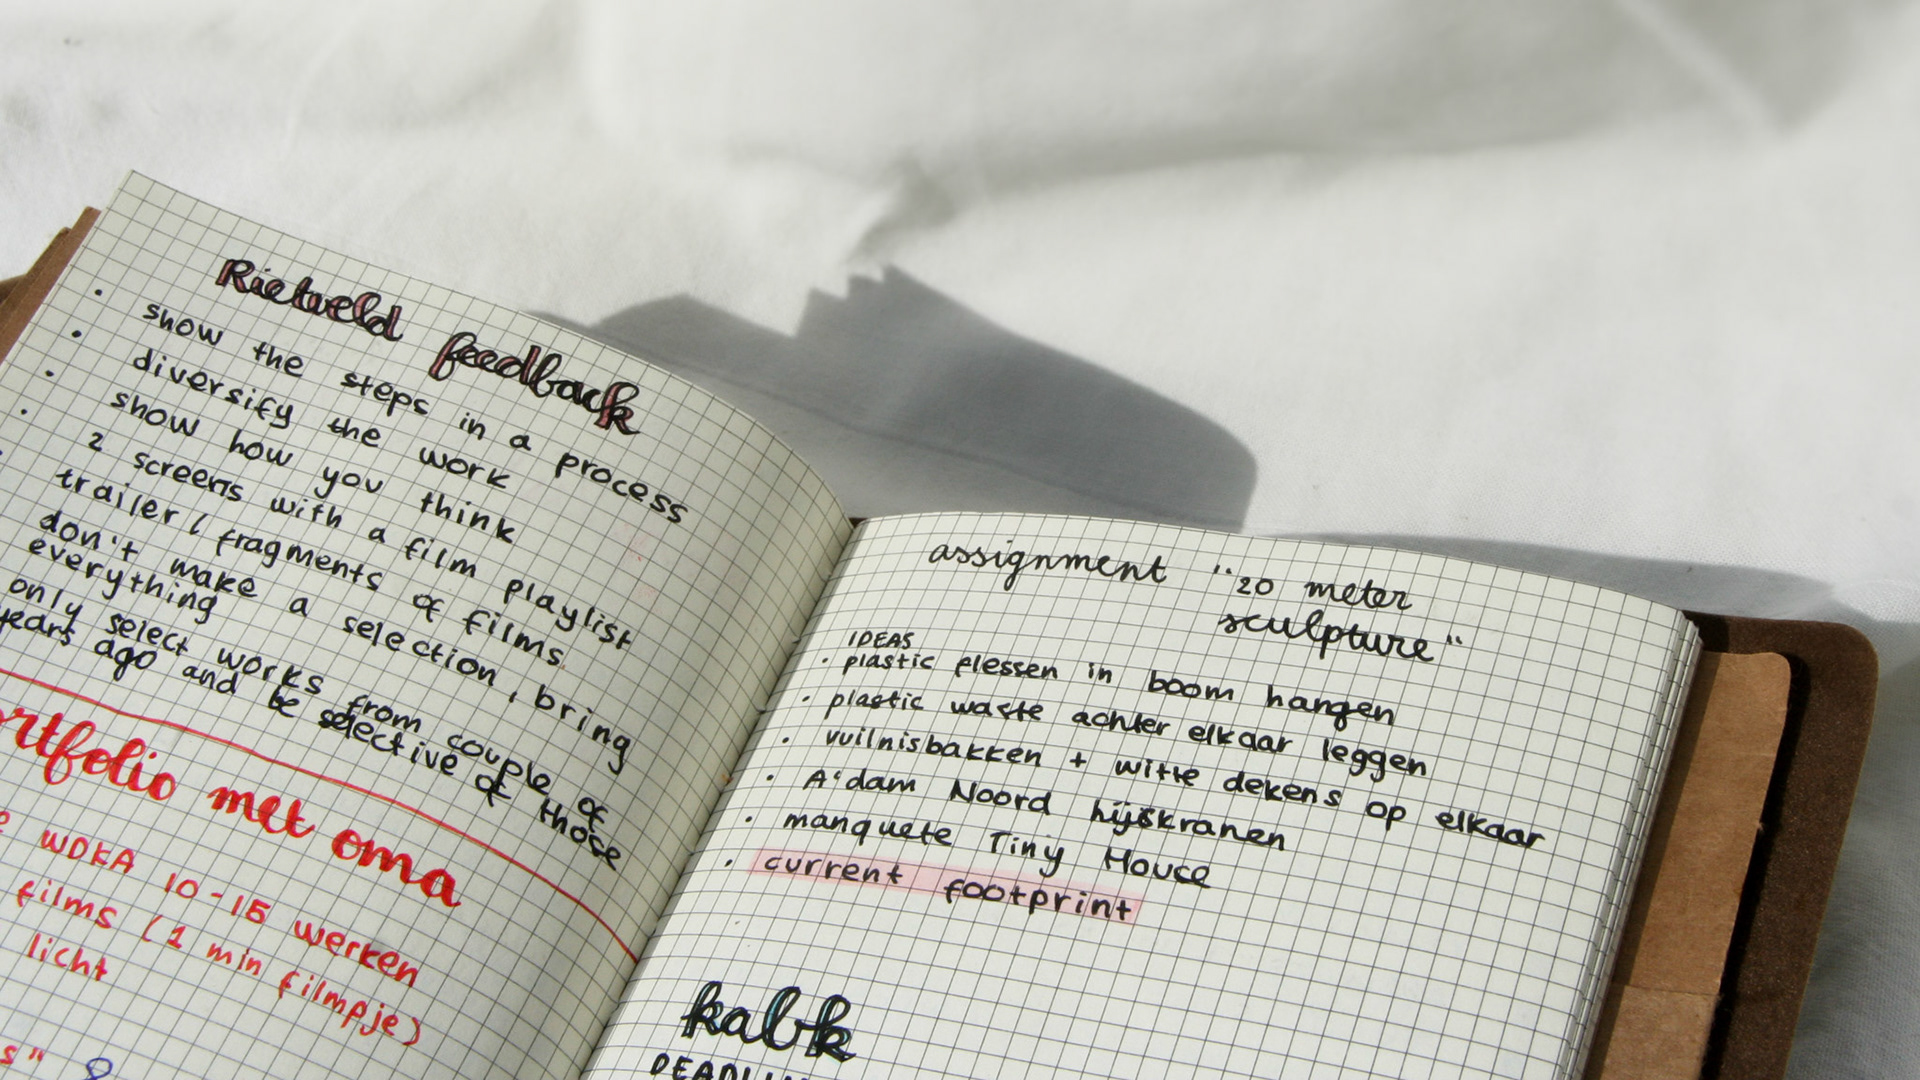 Rietveld feedback
• show the steps in a process
• diversify the work
• show how you think
• 2 screens with a film playlist
trailer / fragments of films
don't make a selection, bring
everything
only select works from couple of
years ago and be selective of those
met oma
WDKA 10-15 werken
films (1 min filmpje)
licht
assignment "20 meter
sculpture"
IDEAS
• plastic flessen in boom hangen
• plastic waste achter elkaar leggen
• vuilnisbakken + witte dekens op elkaar
• A'dam Noord hijskranen
• manquete Tiny House
• current footprint
kabk